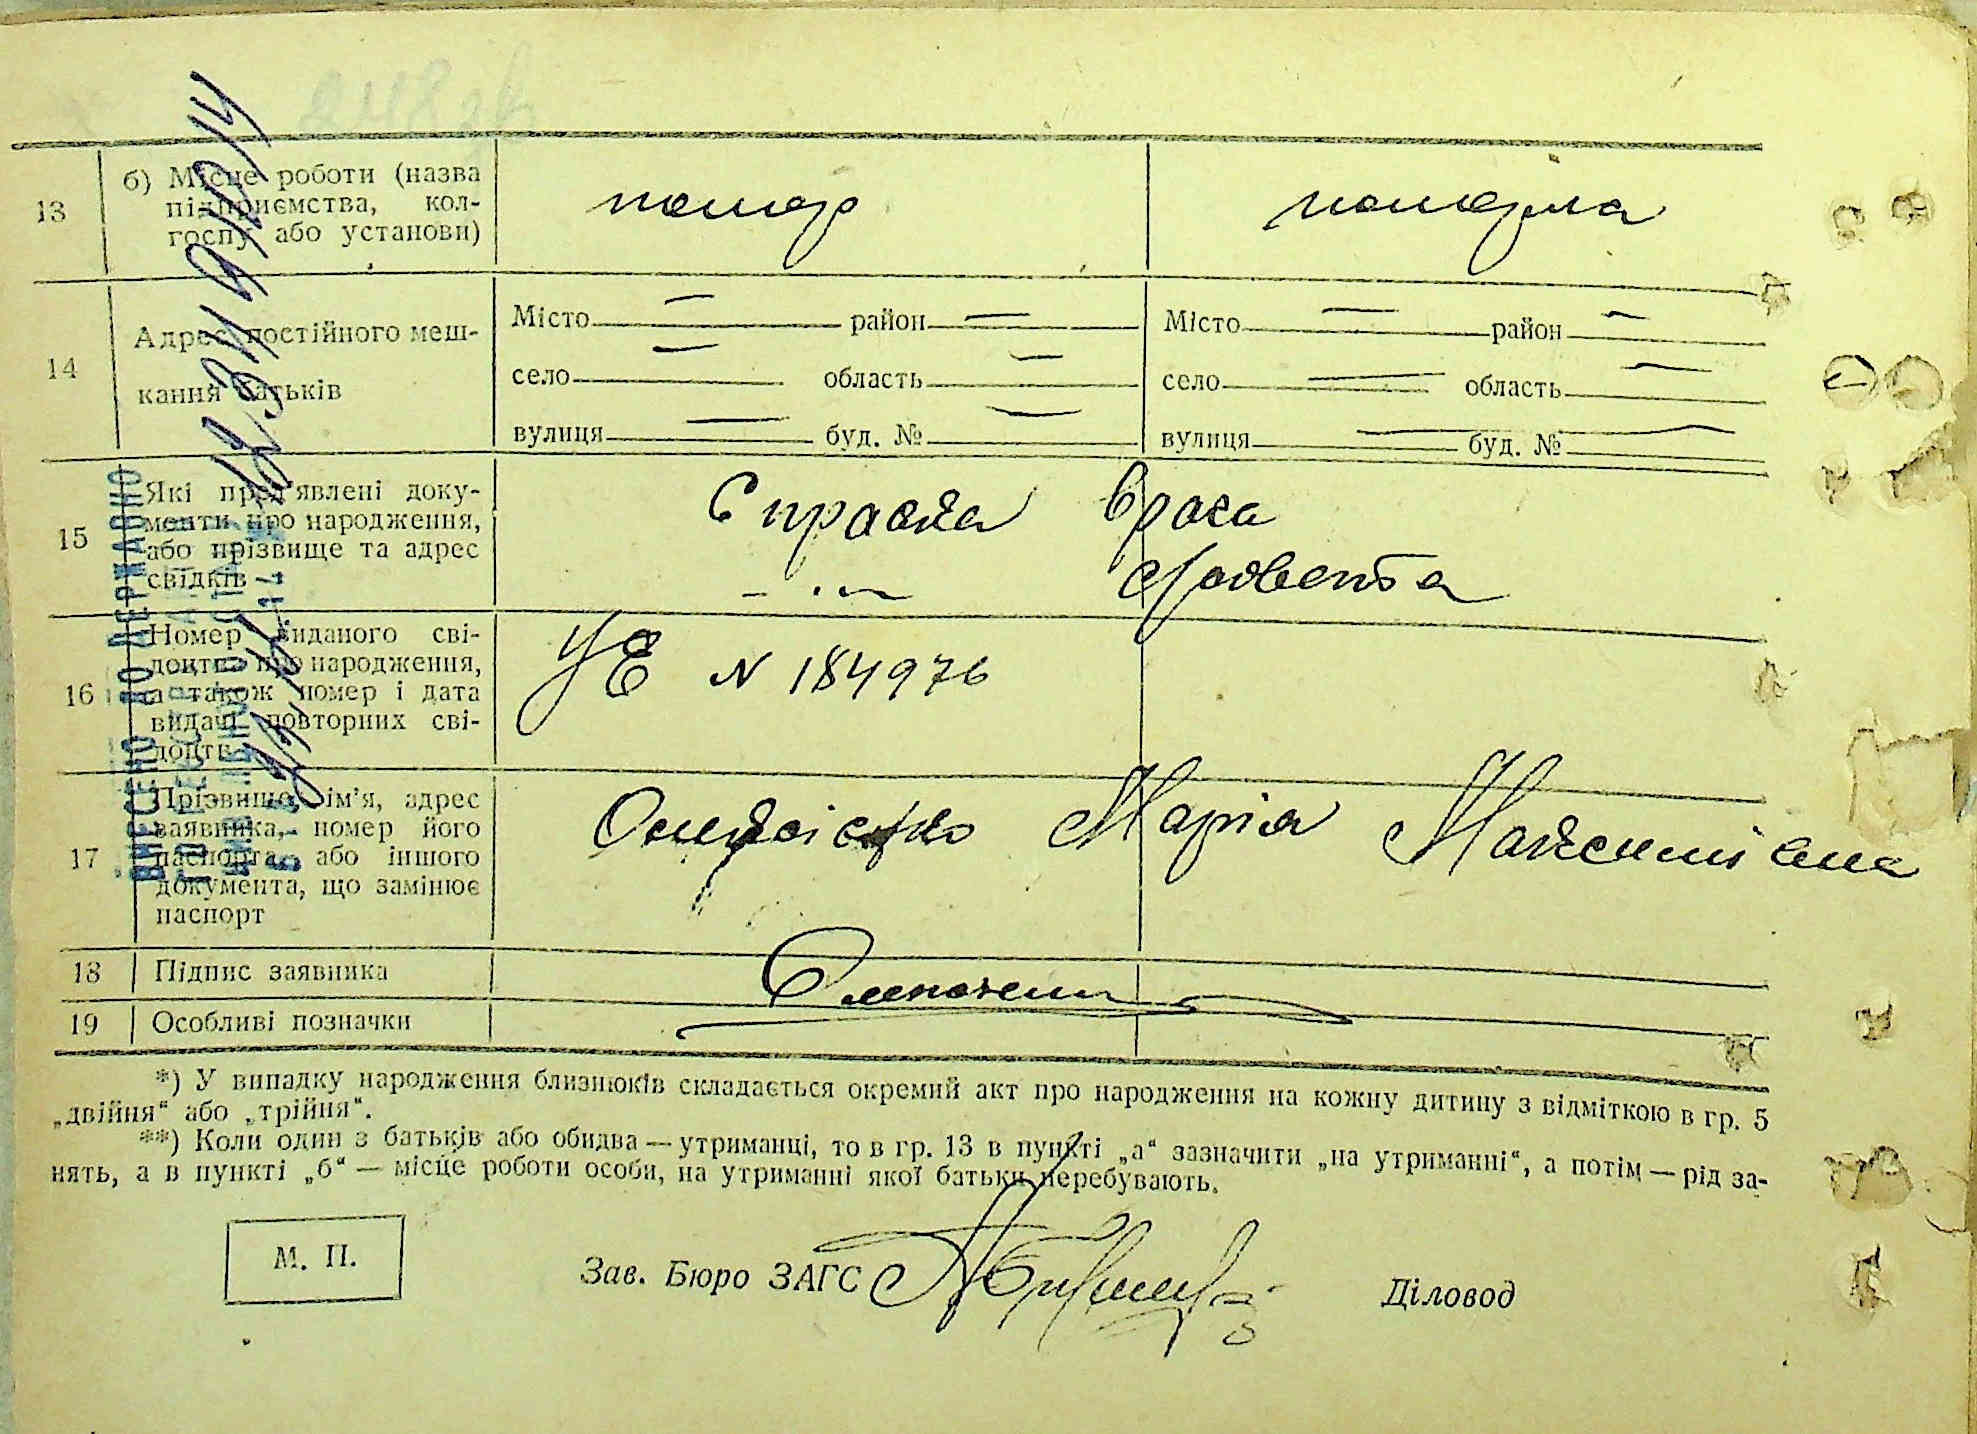 13
б) Місце роботи (назва
підприємства, кол-
госпу або установи)
помер
померла
14
Адрес постійного меш-
кання батьків
Місто район
село область
вулиця буд. №
Місто район
село область
вулиця буд. №
15
Які пред'явлені доку-
менти про народження,
або прізвище та адрес
свідків
Справка врага
16
Номер виданого сві-
доцтва про народження,
а також номер і дата
видачі повторних сві-
доцтв
УЕ N 184976
17
Прізвище, ім'я, адрес
заявника, номер його
паспорта, або іншого
документа, що замінює
паспорт
Марія
18
Підпис заявника
19
Особливі позначки
*) У випадку народження близнюків складається окремий акт про народження на кожну дитину з відміткою в гр. 5
„двійня“ або „трійня“.
**) Коли один з батьків або обидва — утриманці, то в гр. 13 в пункті „а“ зазначити „на утриманні“, а потім — рід за-
нять, а в пункті „б“ — місце роботи особи, на утриманні якої батьки перебувають.
М. П.
Зав. Бюро ЗАГС
Діловод
ВНЕСЕНО ДО ДЕРЖАВНОГО